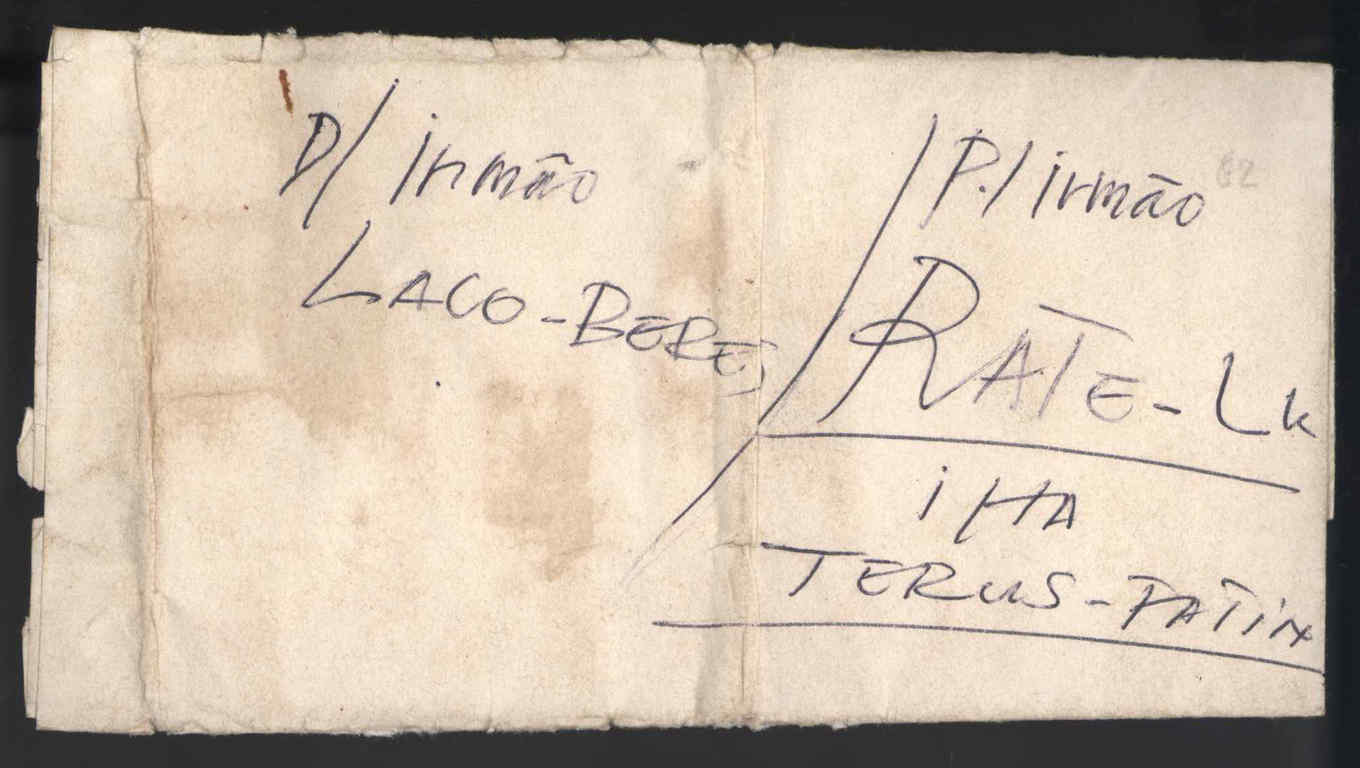 D/ irmão
LACO-BERES
P./ irmão
62
RATE-LK
iHA
TERUS-FATIN